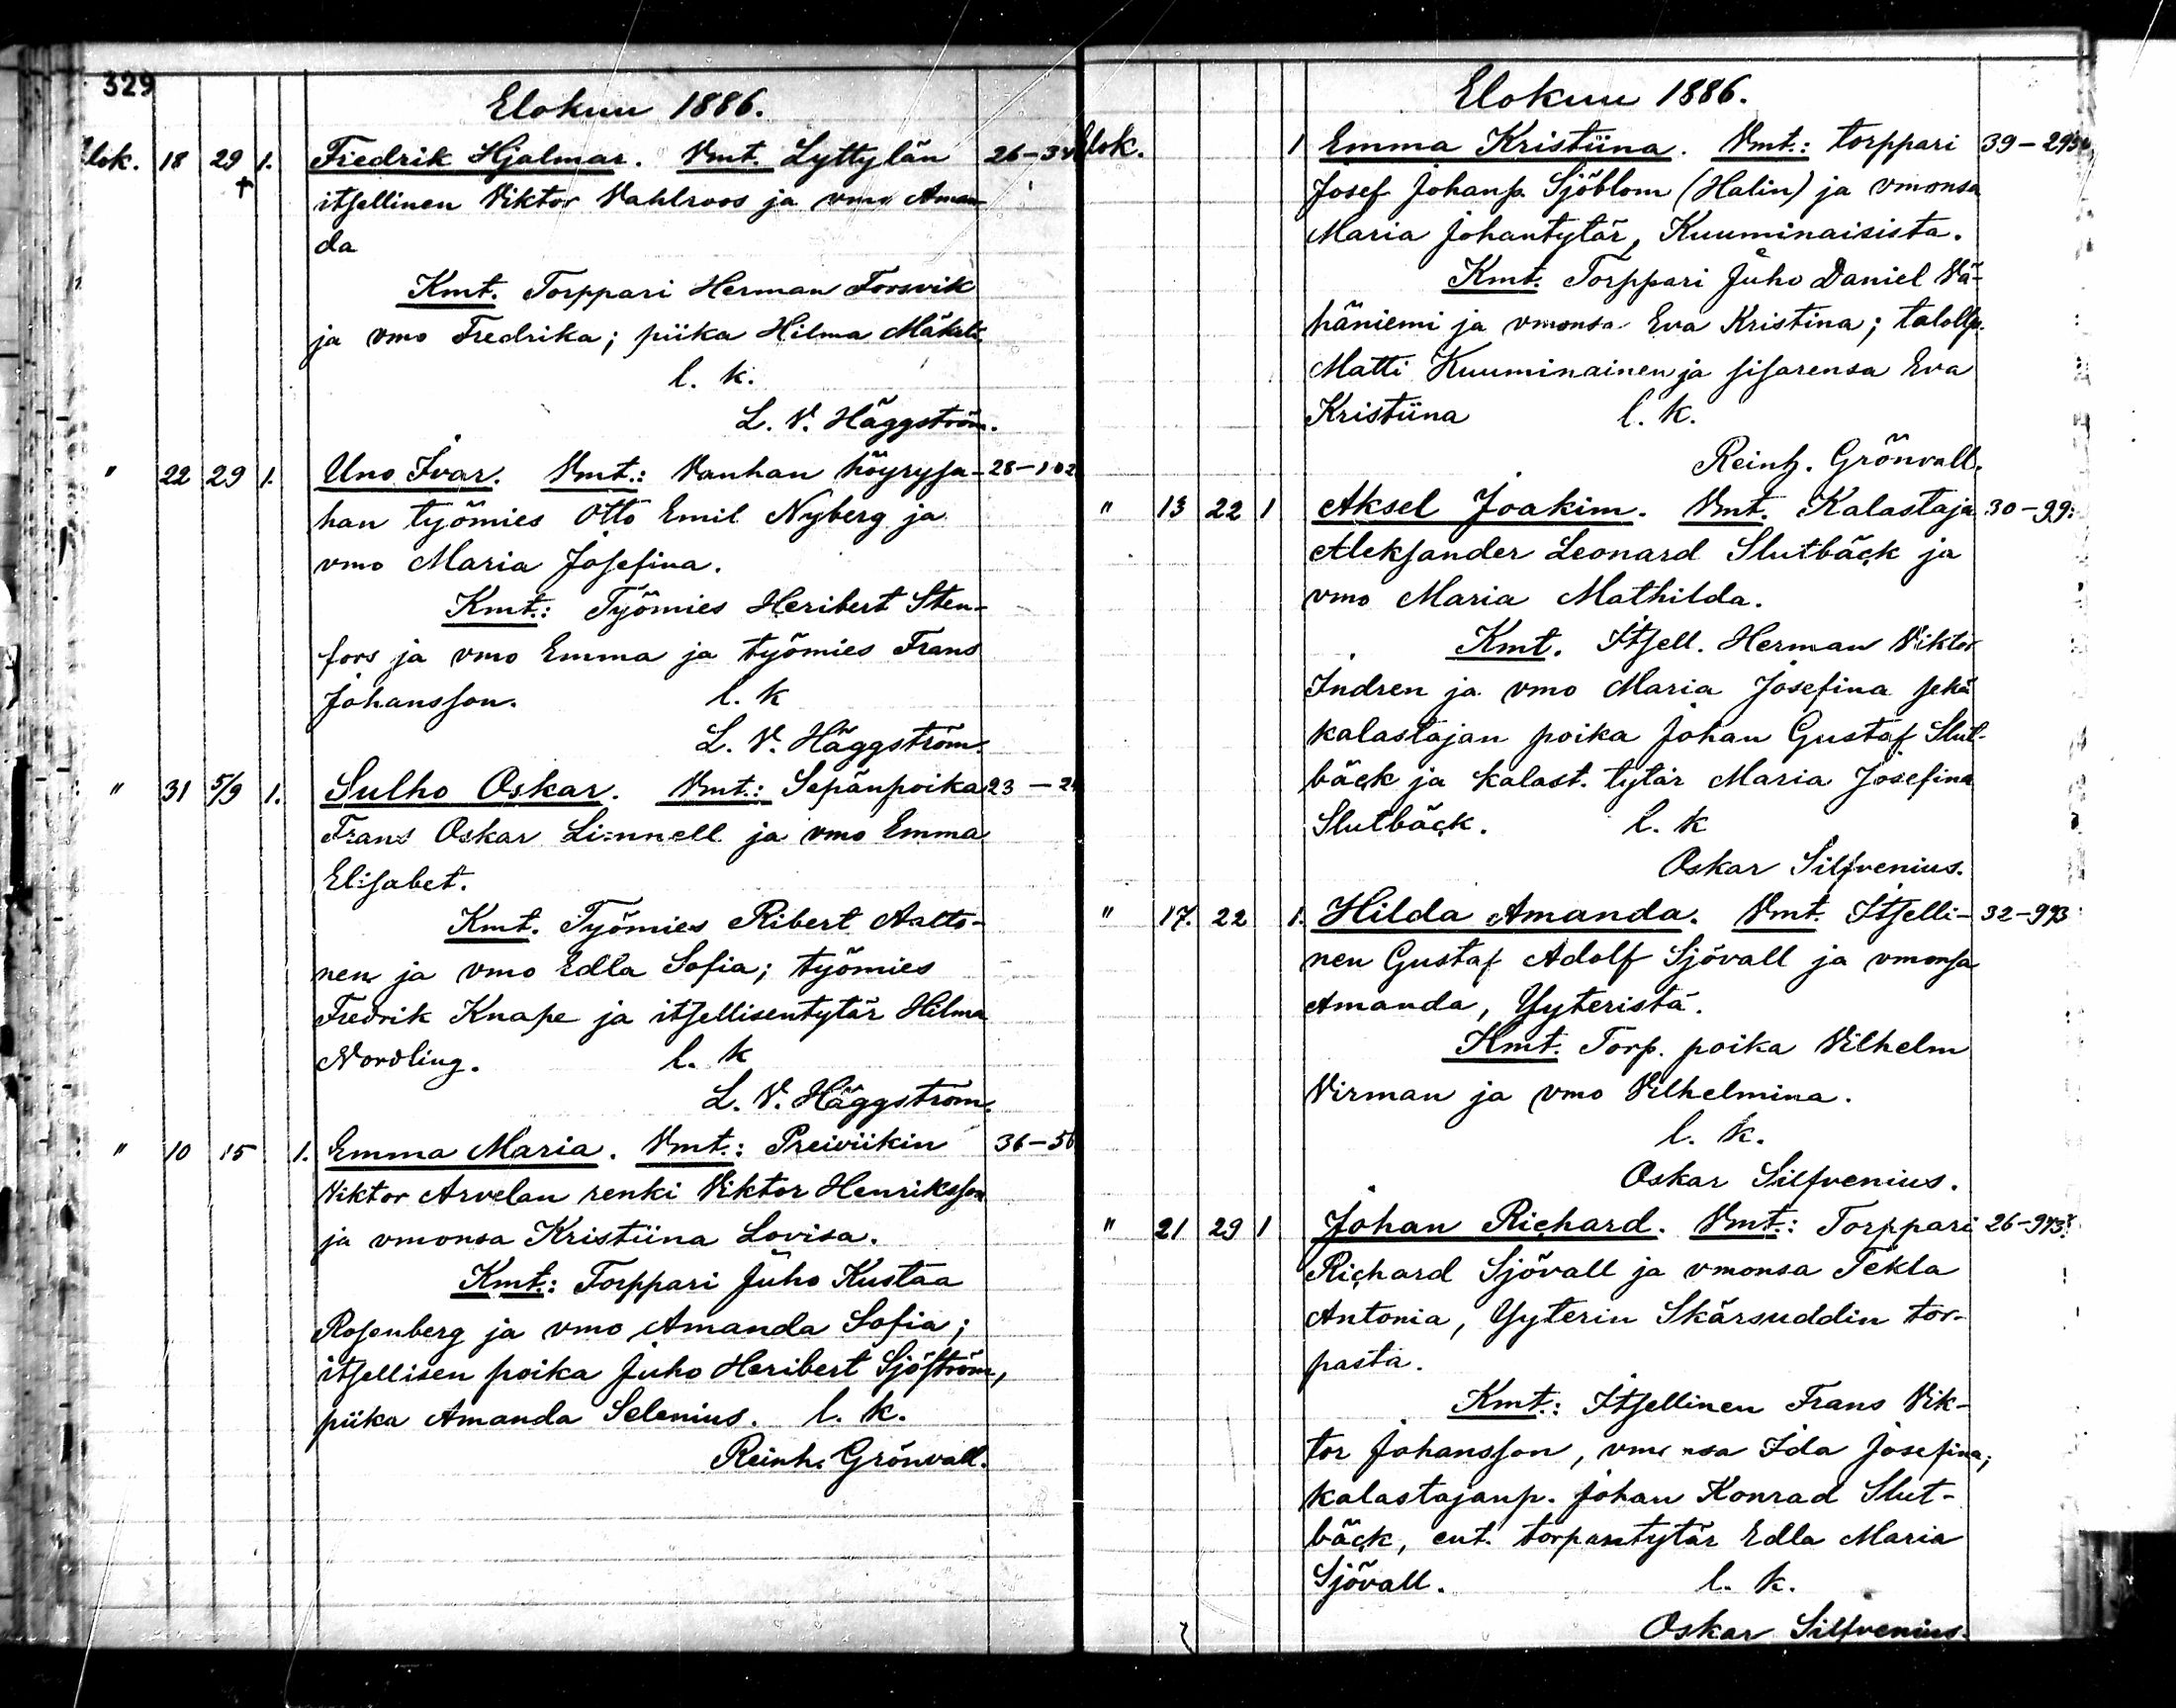 329
Elokuu 1886.
Elok. 18 29 1. Fredrik Hjalmar. Vmt. Lyttylän 26-34
† itsellinen Viktor Vahlroos ja vmo Aman-
da
Kmt. Torppari Herman Forsvik
ja vmo Fredrika; piika Hilma Mäkelä.
l. k.
L. V. Häggström.
" 22 29 1. Uno Ivar. Vmt.: Vanhan höyrysa- 28-102
han työmies Otto Emil Nyberg ja
vmo Maria Josefina.
Kmt.: Työmies Heribert Sten-
fors ja vmo Emma ja työmies Frans
Johansson. l. k
L. V. Häggström.
" 31 5/9 1. Sulho Oskar. Vmt.: Sepänpoika 23-2
Frans Oskar Linnell ja vmo Emma
Elisabet.
Kmt. Työmies Ribert Aalto-
nen ja vmo Edla Sofia; työmies
Fredrik Knape ja itsellisentytär Hilma
Nordling. l. k
L. V. Häggström.
" 10 15 1. Emma Maria. Vmt.: Preiviikin 36-56
Viktor Arvelan renki Viktor Henriksson
ja vmonsa Kristiina Lovisa.
Kmt.: Torppari Juho Kustaa
Rosenberg ja vmo Amanda Sofia;
itsellisen poika Juho Heribert Sjöström,
piika Amanda Selenius. l. k.
Reinh. Grönvall.
Elokuu 1886.
Elok. 1 Emma Kristiina. Vmt.: torppari 39-293
Josef Johanp. Sjöblom (Halin) ja vmonsa
Maria Johantytär, Kuuminaisista.
Kmt. Torppari Juho Daniel Vä-
häniemi ja vmonsa Eva Kristina; talollp.
Matti Kuuminainen ja sisarensa Eva
Kristiina l. k.
Reinh. Grönvall.
" 13 22 1 Aksel Joakim. Vmt. Kalastaja 30-99
Aleksander Leonard Slutbäck ja
vmo Maria Mathilda.
Kmt. Itsell. Herman Viktor
Indren ja vmo Maria Josefina sekä
kalastajan poika Johan Gustaf Slut-
bäck ja kalast. tytär Maria Josefina
Slutbäck. l. k
Oskar Silfvenius.
" 17. 22 1. Hilda Amanda. Vmt. Itselli- 32-993
nen Gustaf Adolf Sjövall ja vmonsa
Amanda, Yyteristä.
Kmt. Torp. poika Vilhelm
Virman ja vmo Vilhelmina.
l. k.
Oskar Silfvenius.
" 21 29 1 Johan Richard. Vmt.: Torppari 26-993
Richard Sjövall ja vmonsa Tekla
Antonia, Yyterin Skärsuddin tor-
pasta.
Kmt.: Itsellinen Frans Vik-
tor Johansson, vmonsa Ida Josefina;
kalastajanp. Johan Konrad Slut-
bäck, ent. torparintytär Edla Maria
Sjövall. l. k.
Oskar Silfvenius.